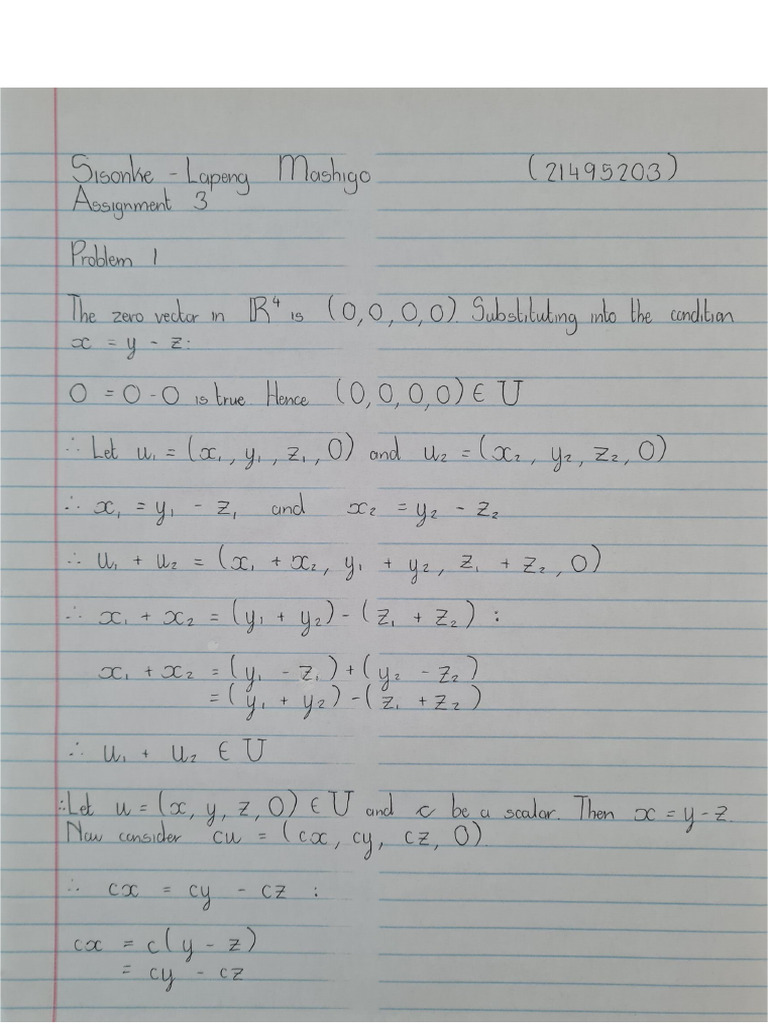 Sisonke - Lapeng Mashigo (21495203)
Assignment 3
Problem 1
The zero vector in ℝ⁴ is (0,0,0,0). Substituting into the condition
x = y - z:
0 = 0 - 0 is true. Hence (0,0,0,0) ∈ U
∴ Let u₁ = (x₁, y₁, z₁, 0) and u₂ = (x₂, y₂, z₂, 0)
∴ x₁ = y₁ - z₁ and x₂ = y₂ - z₂
∴ u₁ + u₂ = (x₁ + x₂, y₁ + y₂, z₁ + z₂, 0)
∴ x₁ + x₂ = (y₁ + y₂) - (z₁ + z₂) :
x₁ + x₂ = (y₁ - z₁) + (y₂ - z₂)
= (y₁ + y₂) - (z₁ + z₂)
∴ u₁ + u₂ ∈ U
∴ Let u = (x, y, z, 0) ∈ U and c be a scalar. Then x = y - z.
Now consider cu = (cx, cy, cz, 0)
∴ cx = cy - cz :
cx = c(y - z)
= cy - cz